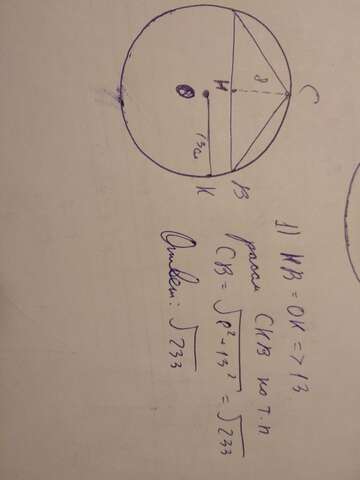 C
8
H
O
13см
B
K
1) HB = OK => 13
CHB по т.п
CB = √8² + 13² = √233
Ответ: √233